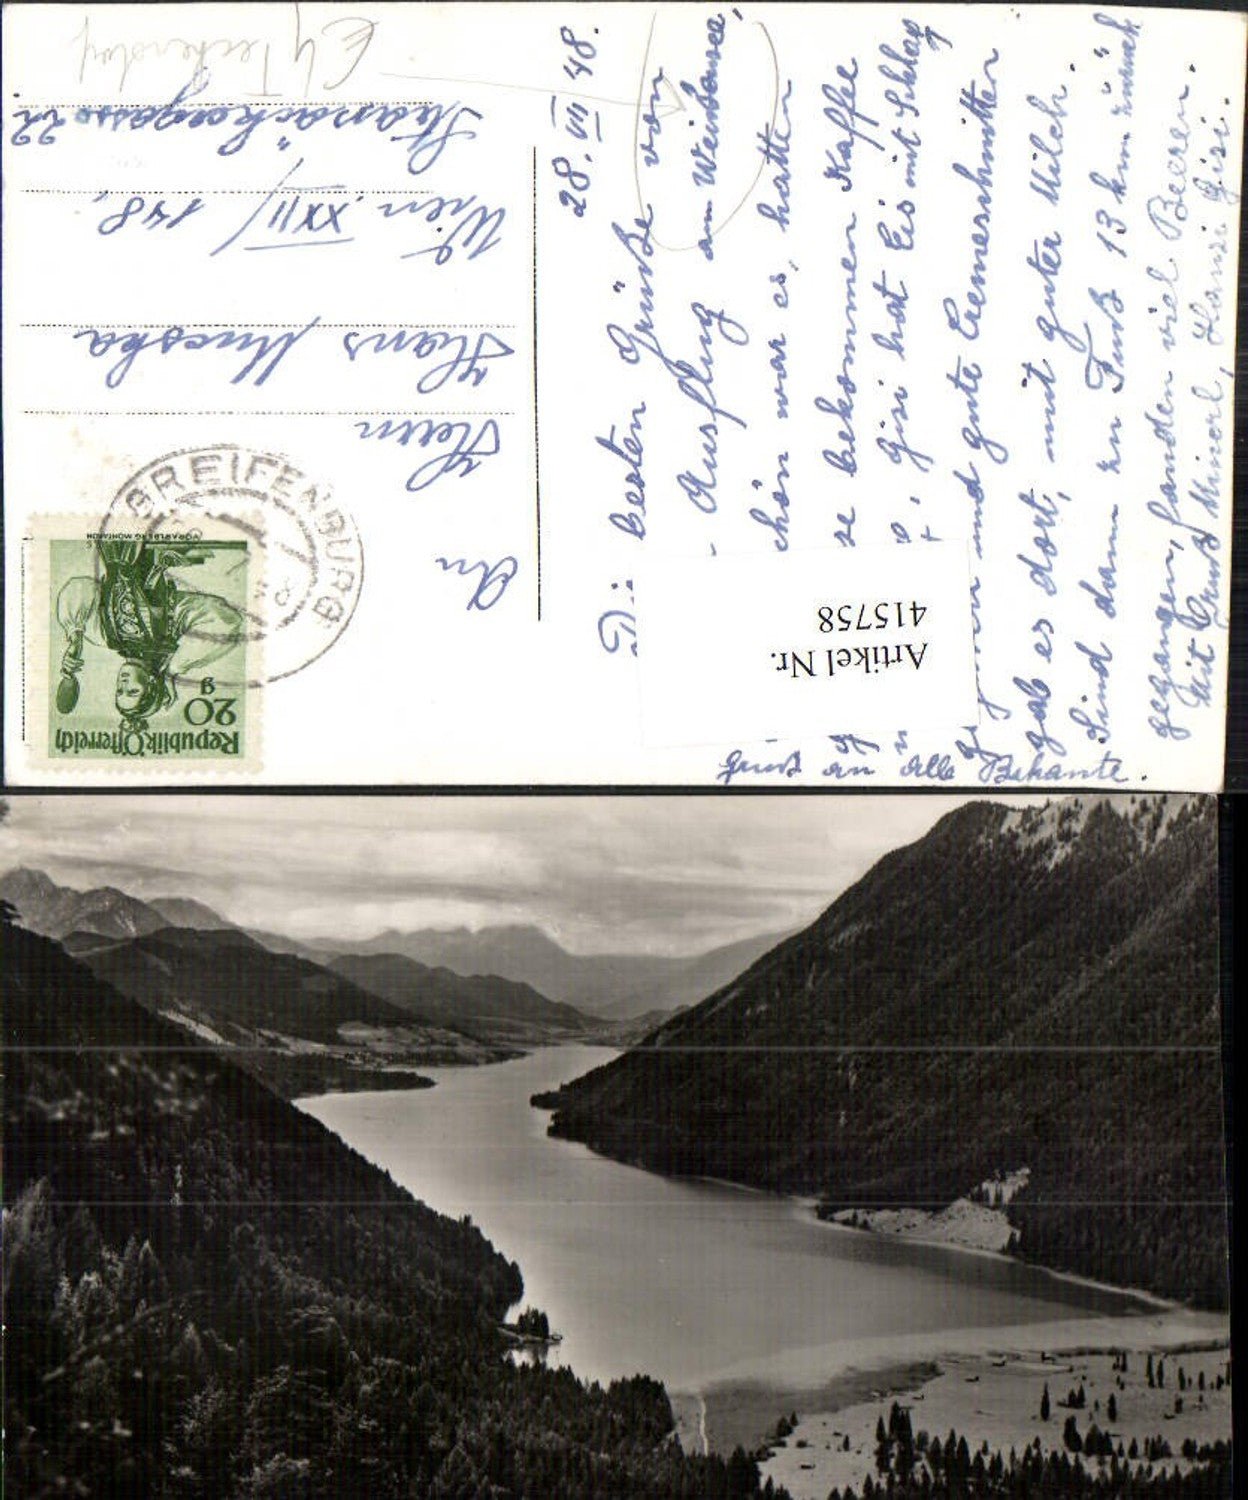 28. VII 48.
Die besten Grüße von
Ausflug am Weissensee,
schön war es, hatten
se bekommen Kaffee
, Gisi hat Eis mit Schlag
und gute Cremeschnitten
gab es dort, mit guter Milch.
Sind dann zu Fuß 13 km zurück
gegangen, fanden viel Beeren.
Mit Gruß Minerl, Hansi Gisi.
Gruß an alle Bekante.
An
Herrn
Hans
Wien. XXII/148,
22
GREIFENBURG
Republik Österreich
20
g
VORARLBERG MONTAFON
Artikel Nr.
415758